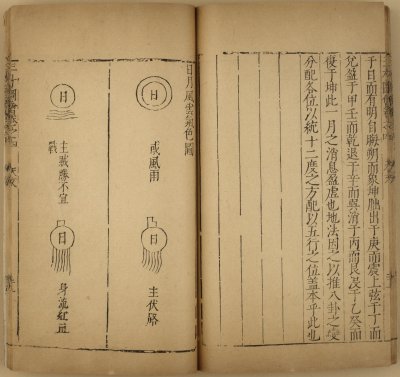 于日而有明自晦朔而象坤朏出于庚而震上弦于丁而
兌盈于甲壬而乾退于辛而巽消于丙而艮及于乙癸而
復于坤此一月之消息盈虛也地法因之以推八卦之變
分配各位以統十二度之方配以五行之位蓋本乎此也
日月風雲氣色圖
日
或風雨
日
主伏
日
主戰勝不宜
戰
日
身流紅血